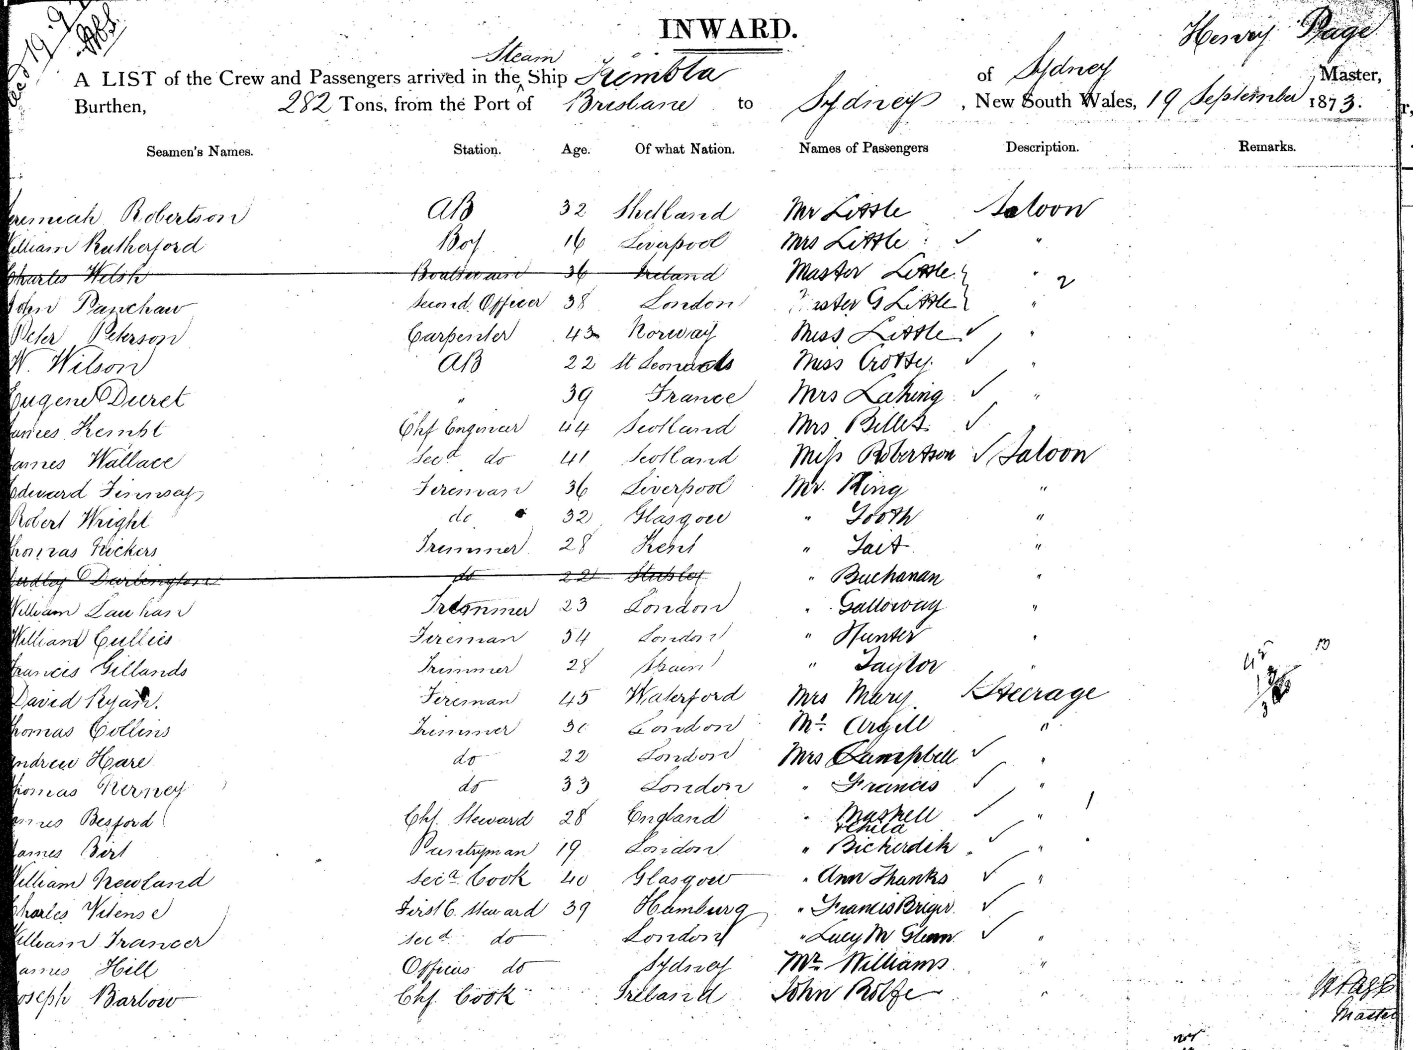 INWARD.
Henry Page
Steam
A LIST of the Crew and Passengers arrived in the Ship Kembla of Sydney Master,
Burthen, 282 Tons, from the Port of Brisbane to Sydney, New South Wales, 19 September 1873.
Seamen's Names. Station. Age. Of what Nation. Names of Passengers Description. Remarks.
eremiah Robertson AB 32 Shetland Mr Little Saloon
William Rutherford Boy 16 Liverpool Mrs Little ✓ "
Charles Welsh Boatswain 36 Ireland Master Little } " 2
John Panchaw Second Officer 38 London Master G Little } "
Peter Peterson Carpenter 43 Norway Miss Little ✓ "
W. Wilson AB 22 St Leonards Miss Crotty ✓ "
Eugene Duret " 39 France Mrs Laking ✓ "
James Kembt Chf Engineer 44 Scotland Mrs Billet ✓
James Wallace Secd do 41 Scotland Miss Robertson ✓ Saloon
Edward Finnsay Fireman 36 Liverpool Mr. King "
Robert Wright do 32 Glasgow " Tooth "
Thomas Vickers Trimmer 28 Kent " Tait "
Dudley Darlington do 22 " Buchanan "
William Lauhan Trimmer 23 London " Galloway "
William Cullies Fireman 54 London " Hunter "
Francis Gillands Trimmer 28 Spain " Taylor "
David Ryan. Fireman 45 Waterford Mrs Mary Steerage
Thomas Collins Trimmer 30 London Mr Argill "
Andrew Hare do 22 London Mrs Campbell ✓ "
Thomas Nerney do 33 London " Francis ✓ "
James Besford Chf. Steward 28 England " Maskell ✓ " 1
+ child
James Birt Pantryman 19 London " Bickerdik ✓ "
William Newland Secd Cook 40 Glasgow " Ann Thanks ✓ "
Charles Vitense First C. Steward 39 Hamburg " Francis Breyer ✓
William Francer secd do London " Lucy M Glenn ✓ "
James Hill Officers do Sydney Mr Williams "
Joseph Barlow Chf Cook Ireland John Rolfe "
H Page
Master